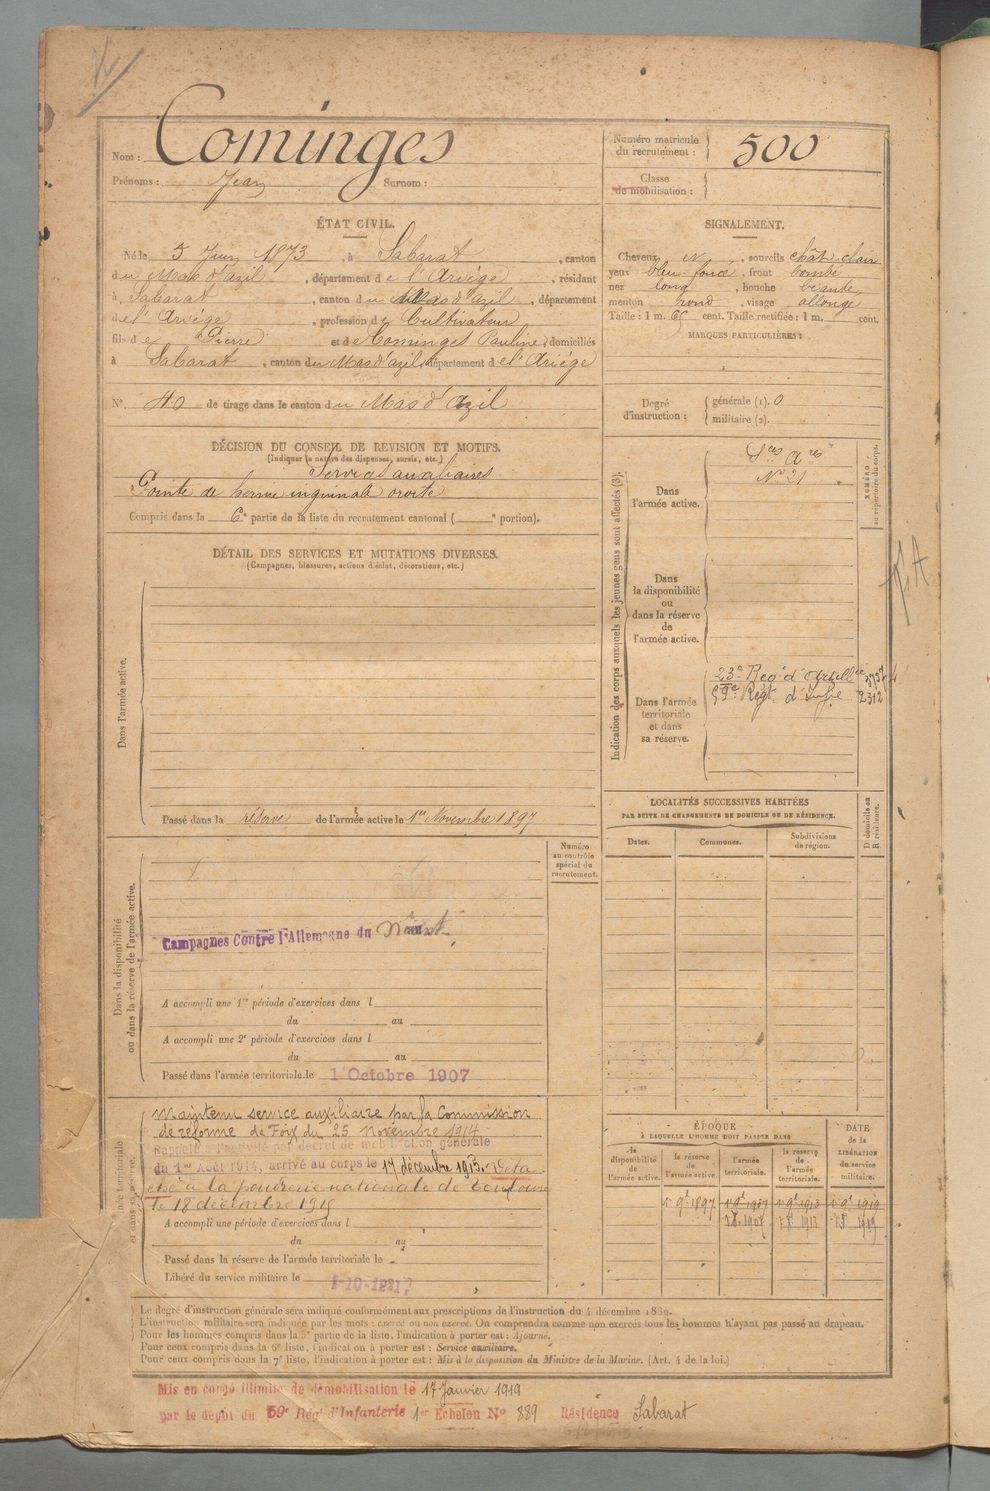 Nom : Cominges
Prénoms : Jean Surnom :
Numéro matricule du recrutement : 500
Classe de mobilisation :
ÉTAT CIVIL.
Né le 5 Juin 1873, à Sabarat, canton
du Mas d'azil, département de l'Ariége, résidant
à Sabarat, canton du Mas d'azil, département
de l'Ariége, profession de Cultivateur
fils de Pierre et de Cominges Pauline, domiciliés
à Sabarat, canton du Mas d'azil, département de l'Ariége
N° 40 de tirage dans le canton du Mas d'azil
SIGNALEMENT.
Cheveux N, sourcils chât-clair
yeux bleu foncé, front bombé
nez long, bouche
menton rond, visage allongé
Taille : 1 m. 65 cent. Taille rectifiée : 1 m. cent.
MARQUES PARTICULIÈRES :
Degré d'instruction : générale (1). 0
militaire (2).
DÉCISION DU CONSEIL DE REVISION ET MOTIFS.
(Indiquer la nature des dispenses, sursis, etc.)
Services auxiliaires
Pointe de hernie inguinale droite
Compris dans la 6e partie de la liste du recrutement cantonal ( e portion).
DÉTAIL DES SERVICES ET MUTATIONS DIVERSES.
(Campagnes, blessures, actions d'éclat, décorations, etc.)
Dans l'armée active.
Passé dans la réserve de l'armée active le 1er Novembre 1897
Indication des corps auxquels les jeunes gens sont affectés (3).
NUMÉRO au répertoire du corps.
Dans l'armée active.
Sces Ares
N° 21
Dans la disponibilité ou dans la réserve de l'armée active.
Dans l'armée territoriale et dans sa réserve.
23e Reg't d'Artillie
59e Régt d'Infie 2312
LOCALITÉS SUCCESSIVES HABITÉES
PAR SUITE DE CHANGEMENTS DE DOMICILE OU DE RÉSIDENCE.
Dates. Communes. Subdivisions de région. D domicile ou R résidence.
Dans la disponibilité ou dans la réserve de l'armée active.
Numéro au contrôle spécial du recrutement.
Campagnes Contre l'Allemagne du Néant
A accompli une 1re période d'exercices dans l
du au
A accompli une 2e période d'exercices dans l
du au
Passé dans l'armée territoriale le 1 Octobre 1907
Maintenu service auxiliaire par la Commission
de réforme de Foix du 25 novembre 1914
Rappelé à l'activité par décret de mobilisation générale
du 1er Août 1914, arrivé au corps le 17 décembre 1915. Déta-
ché à la poudrerie nationale de Toulouse
le 18 décembre 1915
A accompli une période d'exercices dans l
du au
Passé dans la réserve de l'armée territoriale le
Libéré du service militaire le
ÉPOQUE
À LAQUELLE L'HOMME DOIT PASSER DANS
la disponibilité de l'armée active. la réserve de l'armée active. l'armée territoriale. la réserve de l'armée territoriale. DATE de la LIBÉRATION du service militaire.
1 9e 1897 1 9e 1907 1 9e 1913 1 9e 1919
Le degré d'instruction générale sera indiqué conformément aux prescriptions de l'instruction du 4 décembre 1889.
L'instruction militaire sera indiquée par les mots : exercé ou non exercé. On comprendra comme non exercés tous les hommes n'ayant pas passé au drapeau.
Pour les hommes compris dans la 5e partie de la liste, l'indication à porter est : Ajourné.
Pour ceux compris dans la 6e liste, l'indication à porter est : Service auxiliaire.
Pour ceux compris dans la 7e liste, l'indication à porter est : Mis à la disposition du Ministre de la Marine. (Art. 4 de la loi.)
Mis en congé illimité de démobilisation le 17 Janvier 1919
par le dépôt du 59e Rég' d'Infanterie 1er Echelon N° 889 Résidence Sabarat